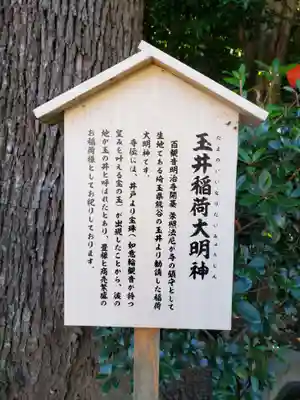 玉井稲荷大明神
たまのいいなりだいみょうじん
百観音明治寺開基 草野法尼が寺の鎮守として
生地である埼玉県熊谷の玉井より勧請した稲荷
大明神です。
寺伝には、井戸より宝珠(如意輪観音が持つ
望みを叶える宝の玉)が出現したことから、彼の
地が玉の井と呼ばれたとあり、豊穣と商売繁盛の
お稲荷様としてお祀りしております。